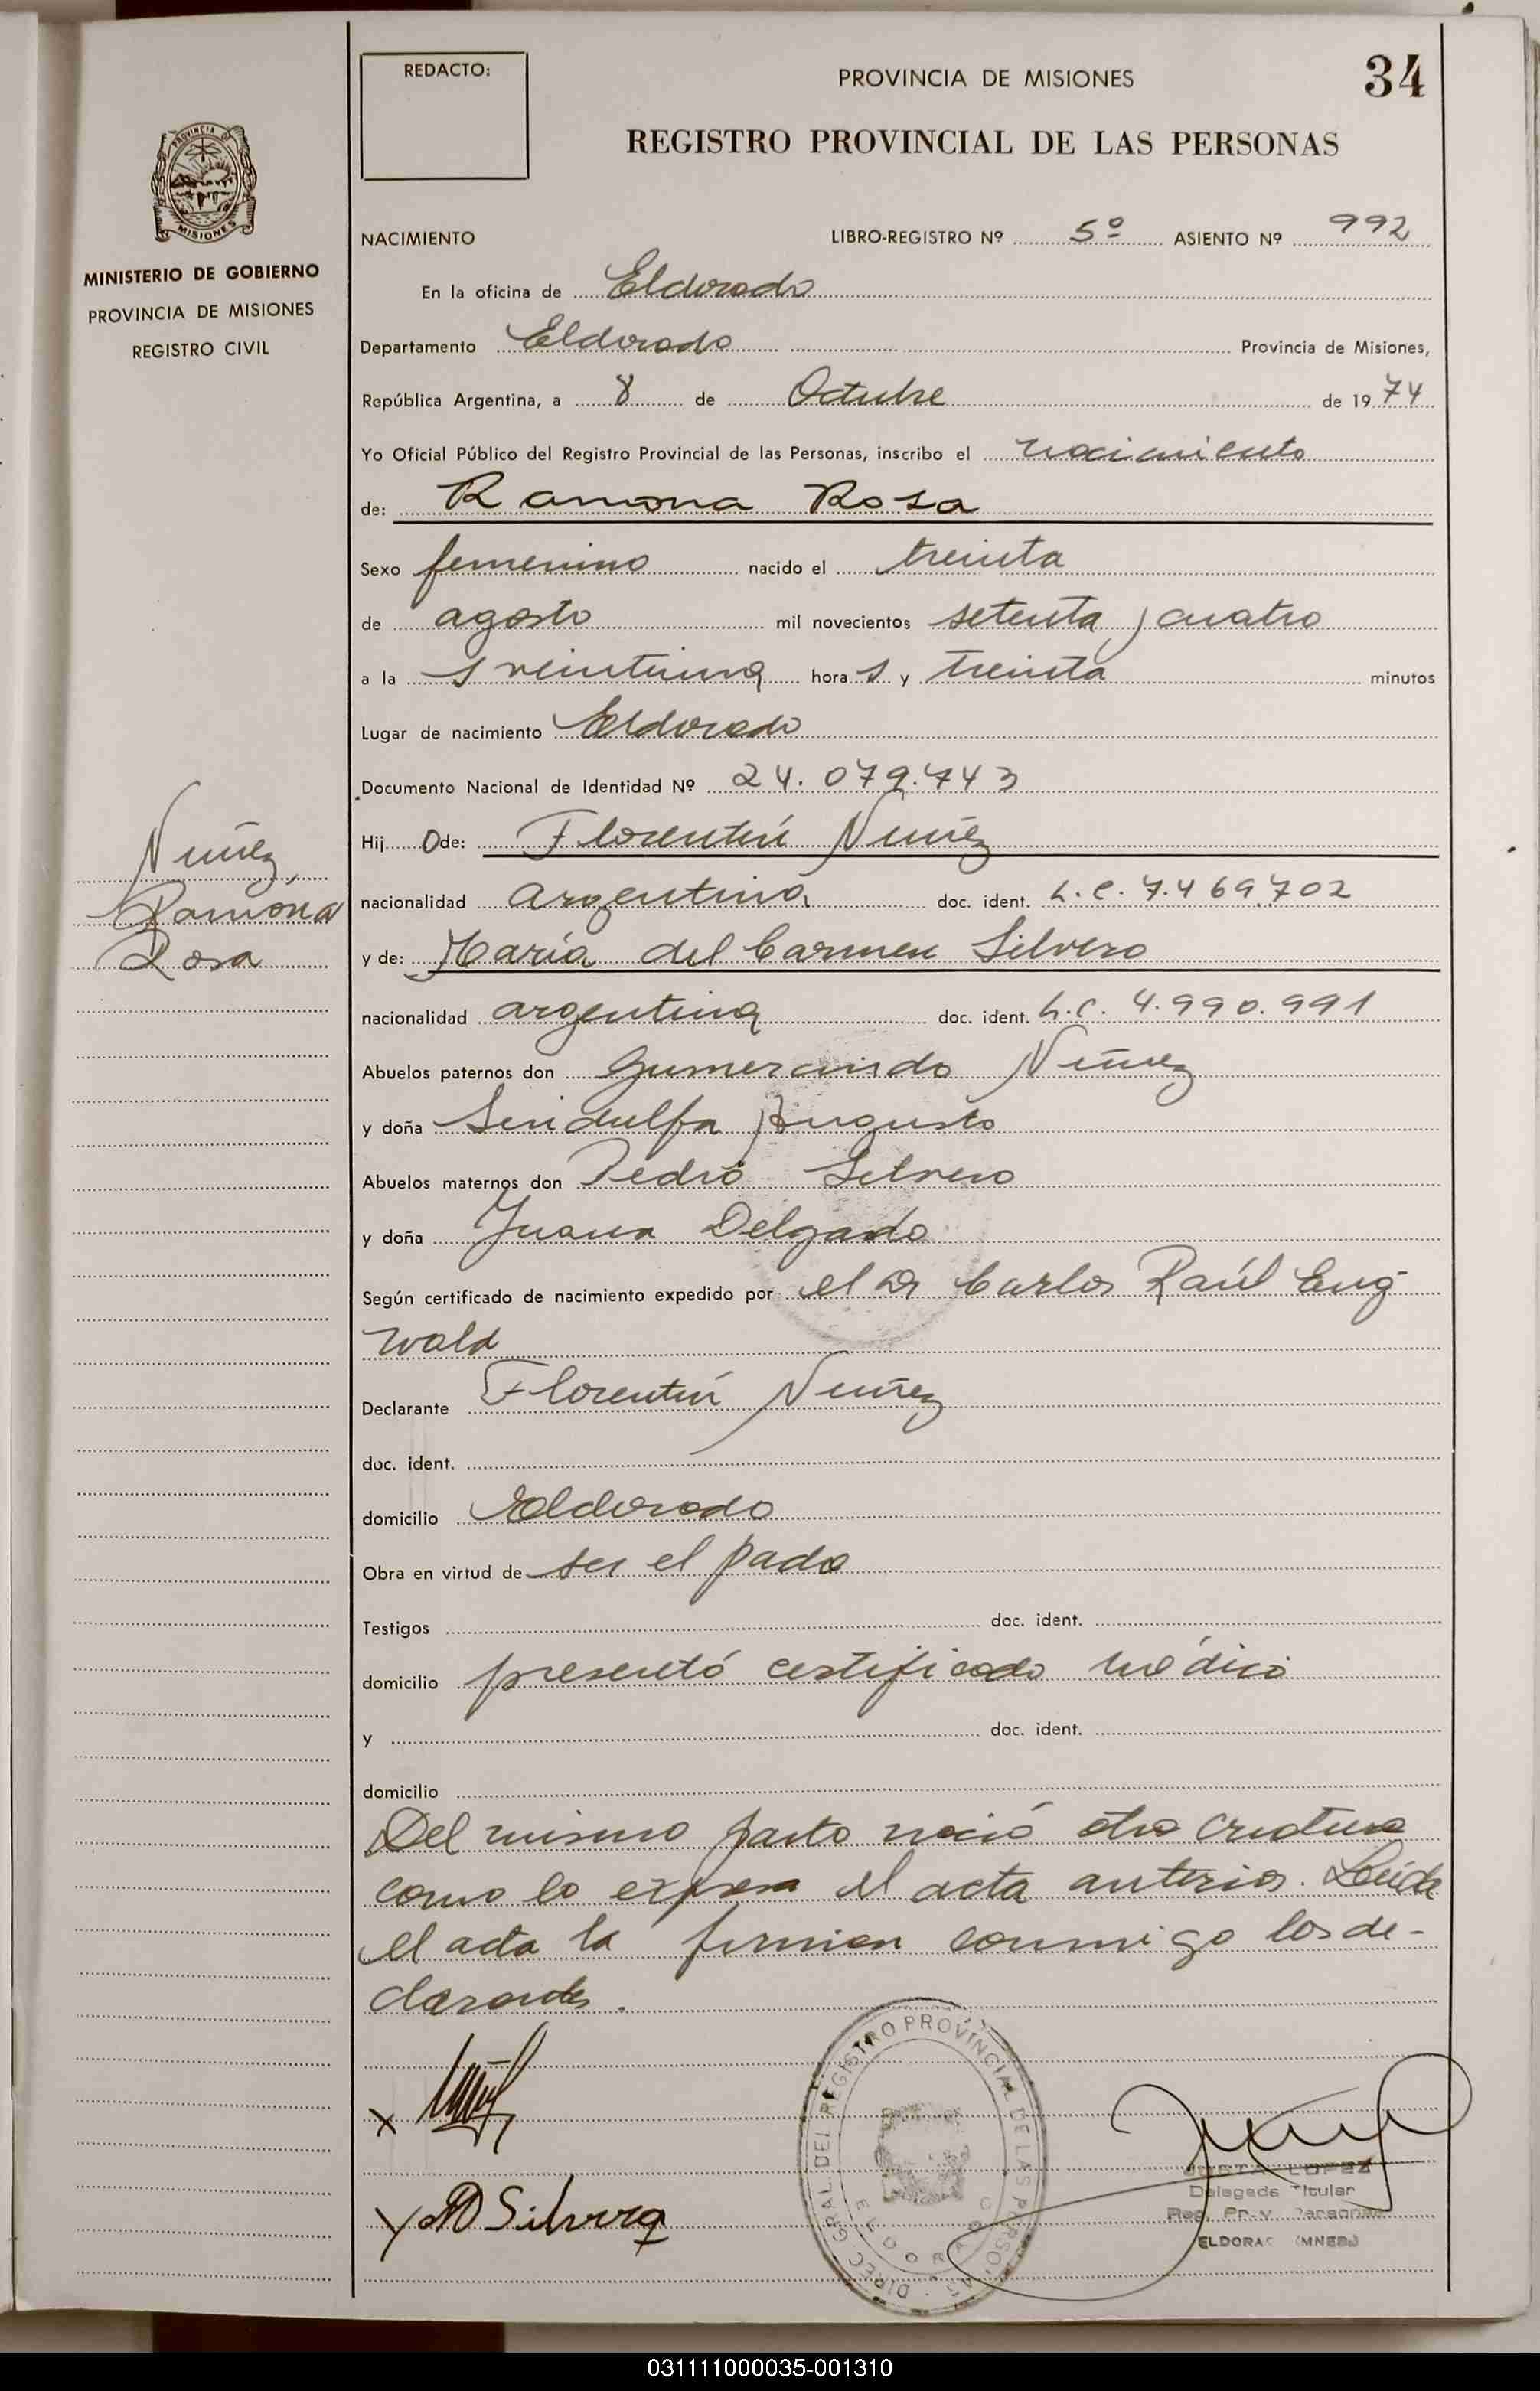 REDACTO:
PROVINCIA DE MISIONES
34
REGISTRO PROVINCIAL DE LAS PERSONAS
PROVINCIA DE
MISIONES
MINISTERIO DE GOBIERNO
PROVINCIA DE MISIONES
REGISTRO CIVIL
NACIMIENTO LIBRO-REGISTRO Nº 5º ASIENTO Nº 992
En la oficina de Eldorado
Departamento Eldorado Provincia de Misiones,
República Argentina, a 8 de Octubre de 1974
Yo Oficial Público del Registro Provincial de las Personas, inscribo el nacimiento
de: Ramona Rosa
Sexo femenino nacido el treinta
de agosto mil novecientos setenta y cuatro
a la s veintiuna hora s y treinta minutos
Lugar de nacimiento Eldorado
Documento Nacional de Identidad Nº 24.079.743
Nuñez,
Ramona
Rosa
Hij o de: Florentín Nuñez
nacionalidad argentina doc. ident. L.E. 7.469.702
y de: María del Carmen Silvero
nacionalidad argentina doc. ident. L.C. 4.990.991
Abuelos paternos don Gumercindo Nuñez
y doña Sindulfa Augusto
Abuelos maternos don Pedro Silvero
y doña Juana Delgado
Según certificado de nacimiento expedido por el Dr Carlos Raúl Eng-
wald
Declarante Florentín Nuñez
doc. ident.
domicilio Eldorado
Obra en virtud de ser el padre
Testigos doc. ident.
domicilio presentó certificado médico
y doc. ident.
domicilio
Del mismo parto nació otra criatura
como lo expresa el acta anterior. Leída
el acta la firman conmigo los de-
clarantes.
x
y MD Silvero
DIREC. GRAL. DEL REGISTRO PROVINCIAL DE LAS PERSONAS
ELDORADO
LOPEZ
Delegada Titular
Reg. Prov. Personas
ELDORADO (MNES)
031111000035-001310